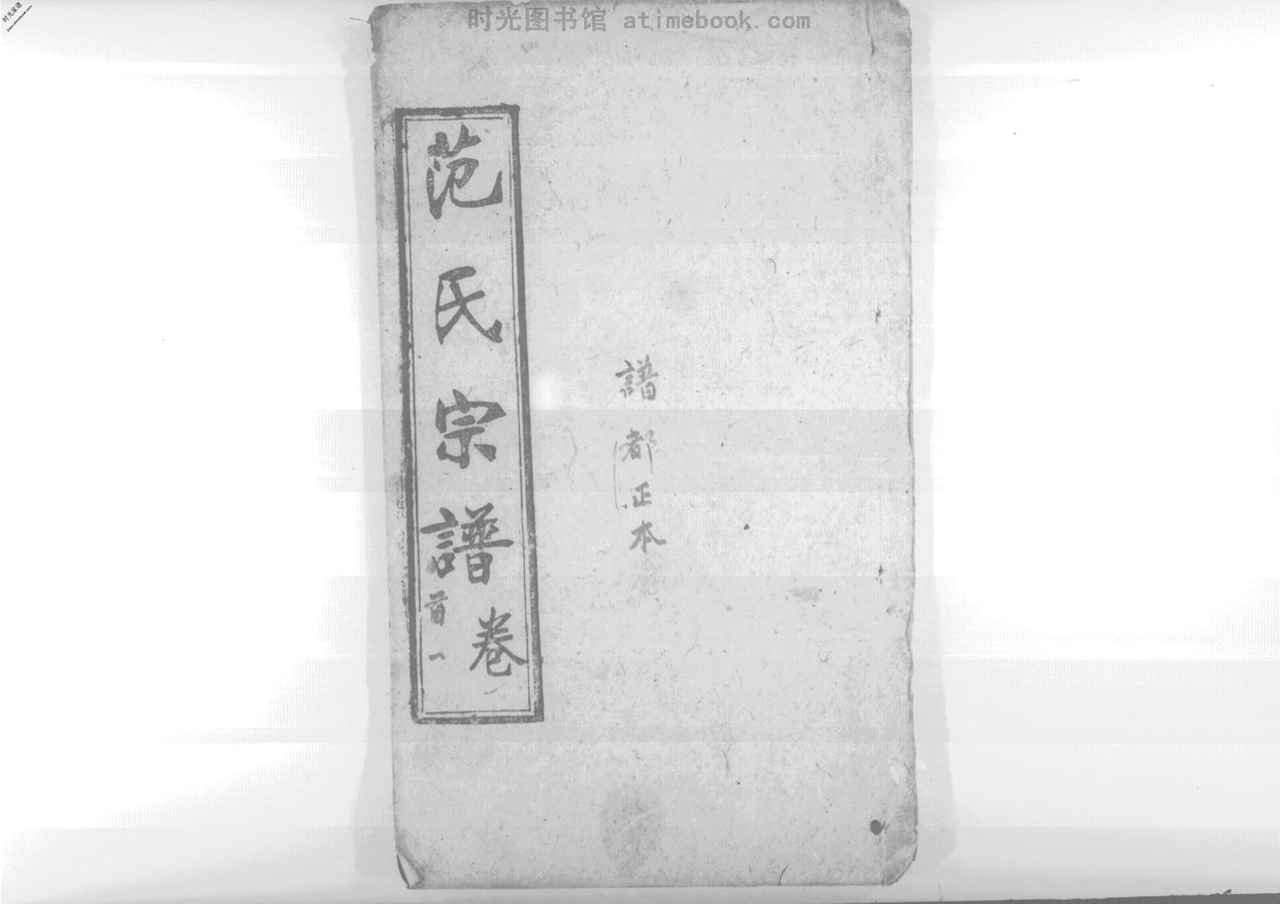 时光图书馆 atimebook.com
譜都正本
范氏宗譜卷
首一